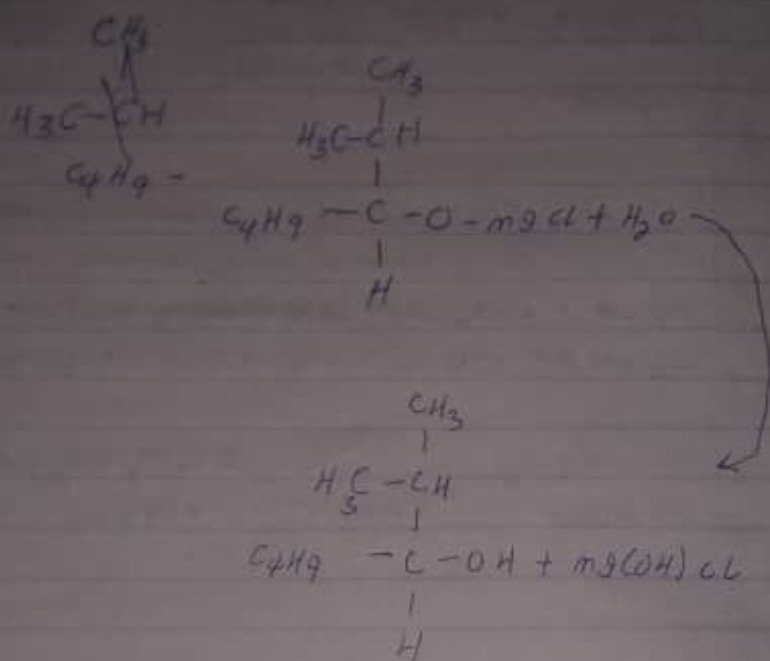 CH3
H3C-CH
C4H9 -
CH3
H3C-CH
C4H9 - C - O - mgCl + H2O
H
CH3
H3C - CH
C4H9 - C - OH + mg(OH)CL
H